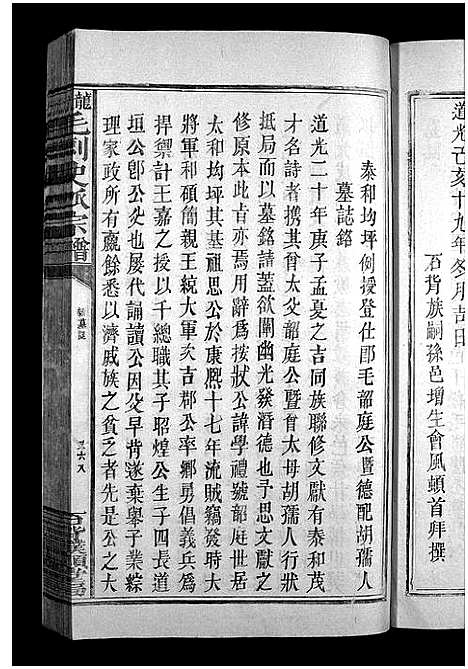 道光己亥十九年冬月吉日
石背族嗣孫邑增生會風頓首拜撰
泰和均坪例授登仕郎毛韶庭公暨德配胡孺人
墓誌銘
道光二十年庚子孟夏之吉同族聯修文獻有泰和茂
才名詩者攜其曾大父韶庭公暨曾大母胡孺人行狀
抵局而以墓銘請蓋欲闡幽光發潛德也予思文獻之
修原本此曷亦焉用辭為按狀公諱學禮號韶庭世居
太和均坪其基祖思公於康熙十七年流賊竊發時大
將軍和碩簡親王統大軍次吉郡公率鄉勇倡義兵為
捍禦計王嘉之授以千總職其子昭煌公生子四長道
垣公即公父也屢代誦讀公因父早背遂棄舉子業綜
理家政所有贏餘悉以濟戚族之貧乏者先是公之大
龍
宗譜